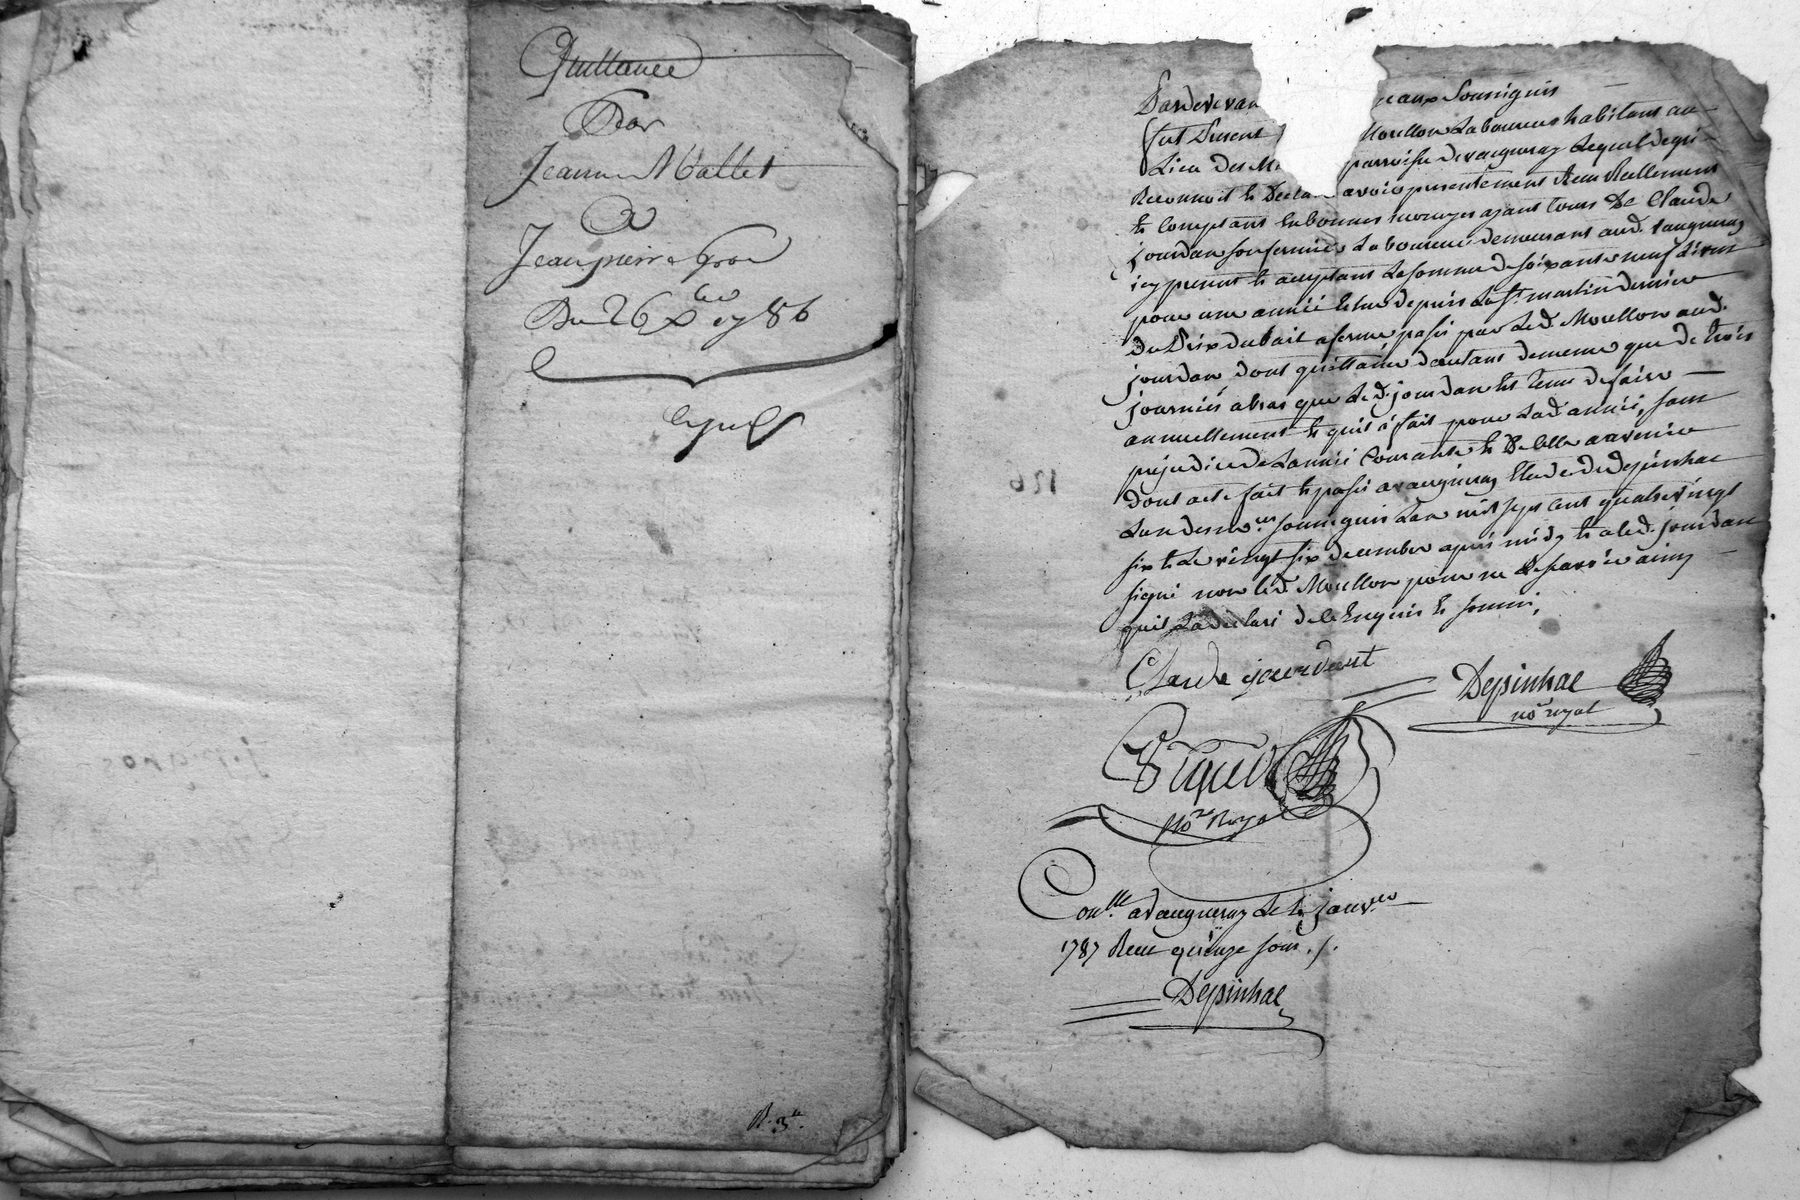 Quittance
Par
Jeanne Mallet
a
Jean pierre Gros
Du 26 Xbre 1786
R. 3#.
Pardevan eaux Soussignés
fut Present Moullon Laboureur habitant au
Lieu des M parroisse de vaugneray Lequel de gré
Reconnoit et Decla avoir presentement Receu Reellement
et Comptant en bonnes monoyes ayant cours De Claude
jourdan son fermier Laboureur demeurant aud. vaugneray
icy present et acceptant La somme de soixante neuf Livres
pour une année echue depuis La St. martin derniere
du Prix du bail a ferme passé par Led. Moullon aud.
jourdan dont quittance d'autant de meme que de trois
journées a bras que Led. jourdan est tenu de faire
annuellement et qu'il à fait pour Lad. année, sans
prejudice de L'année Courante et De Celle a avenir
dont acte fait et passé a vaugneray Etude de depinhac
L'un des nres. soussignés L'an mil sept cent quatre vingt
six et Le vingt six decembre après midy et a led. jourdan
signé non led. Moullon pour ne Le savoir ainsy
qu'il La declaré de ce Enquis et sommé.
Claude jourdant
Depinhac
nore royal
nore Royal
Conllé. a vaugneray Le janvier
1787 Reçu quinze sous ./.
Depinhac
126